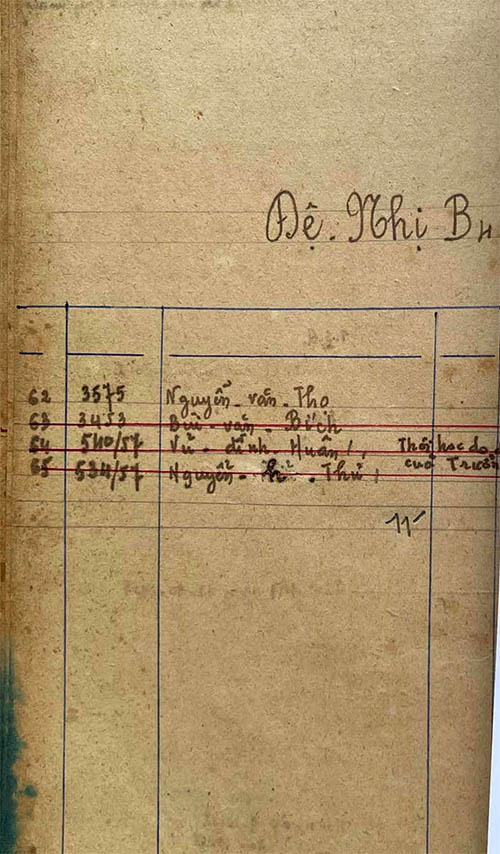 Đệ. Nhị B4
62 3575 Nguyễn - văn - Thọ
63 3453 Bùi - văn - Bích
64 540/57 Vũ - đình - Huân /, Thôi học do
65 534/57 Nguyễn - - Thử / của Trườn
11